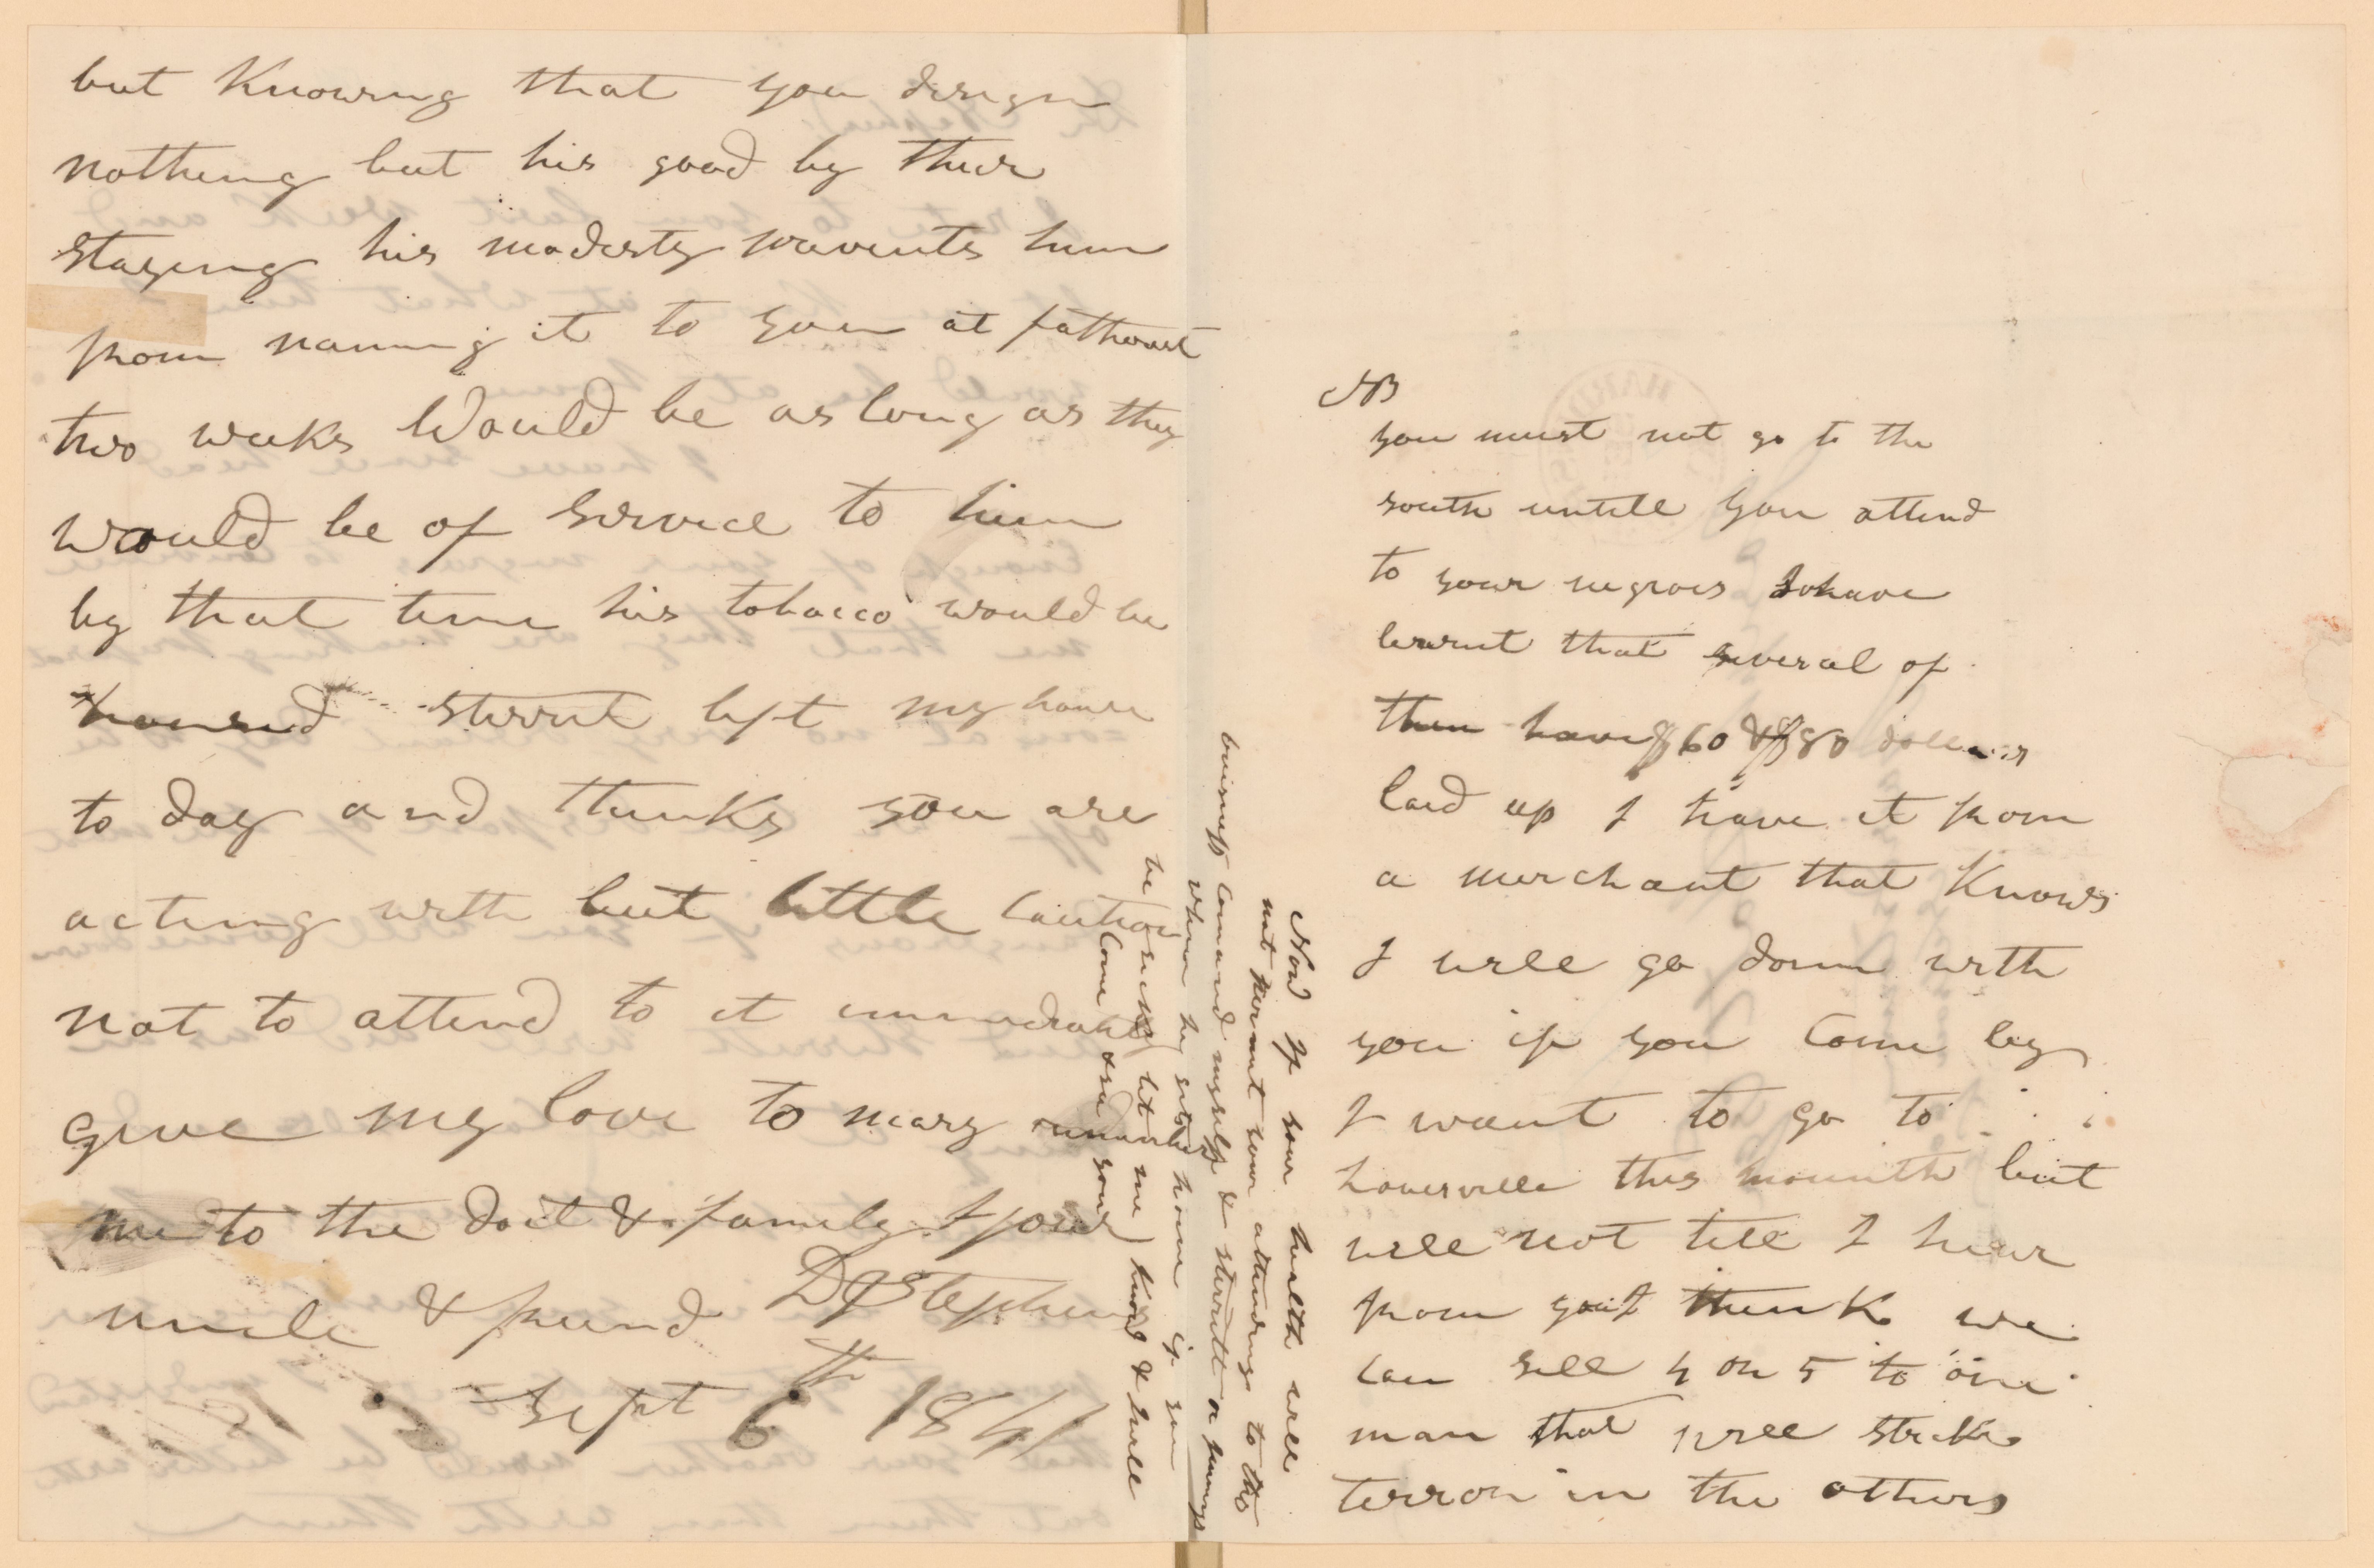 but Knowing that you design
nothing but his good by their
staying his modesty prevents him
from naming it to you at fatherest
two weeks Would be as long as they
would be of service to him
by that time his tobacco would be
housed Sterrett left my house
to day and thinks you are
acting with but little Caution
not to attend to it immediately
give my love to mary remember
me to the doct & family I your
uncle & friend D Stephens
Sept 6th 1841
NB
you must not go to the
south untill you attend
to your negroes I have
learnt that several of
them have $60 & $80 dollars
laid up I have it from
a merchant that Knows
I will go down with
you if you Come by
I want to go to
this mounth but
will not till I hear
from you I think we
can sell 4 or 5 to one
man that will strike
terror in the others
Now if your health will
not permit your attending to the
business Comand myself & Sterrett
when he gets home if you
be sick let me know & I will
Come & see you